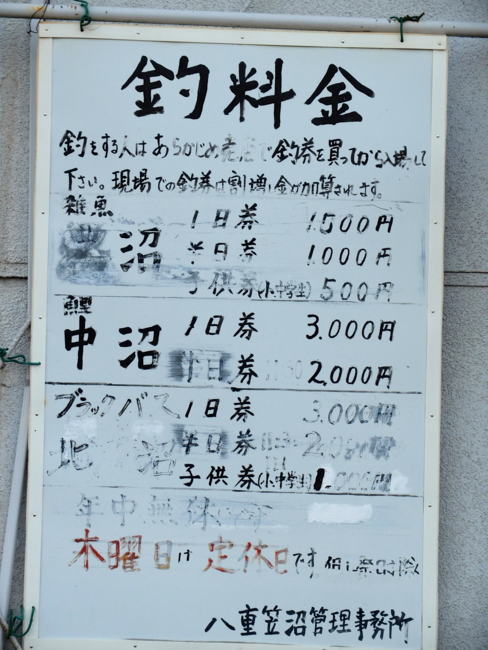 釣料金
釣をする人はあらかじめ売店で釣券を買ってから入場して
下さい。現場での釣券は割増し金が加算されます。
雑魚
沼
1日券 1.500円
半日券 1.000円
子供券(小中学生) 500円
鯉
中沼
1日券 3.000円
半日券 2.000円
ブラックバス 1日券 3.000円
北 沼
半日券 2.000円
子供券(小中学生) 1.000円
年中無休
木曜日は定休日です、但し祭日は除く
八重笠沼管理事務所